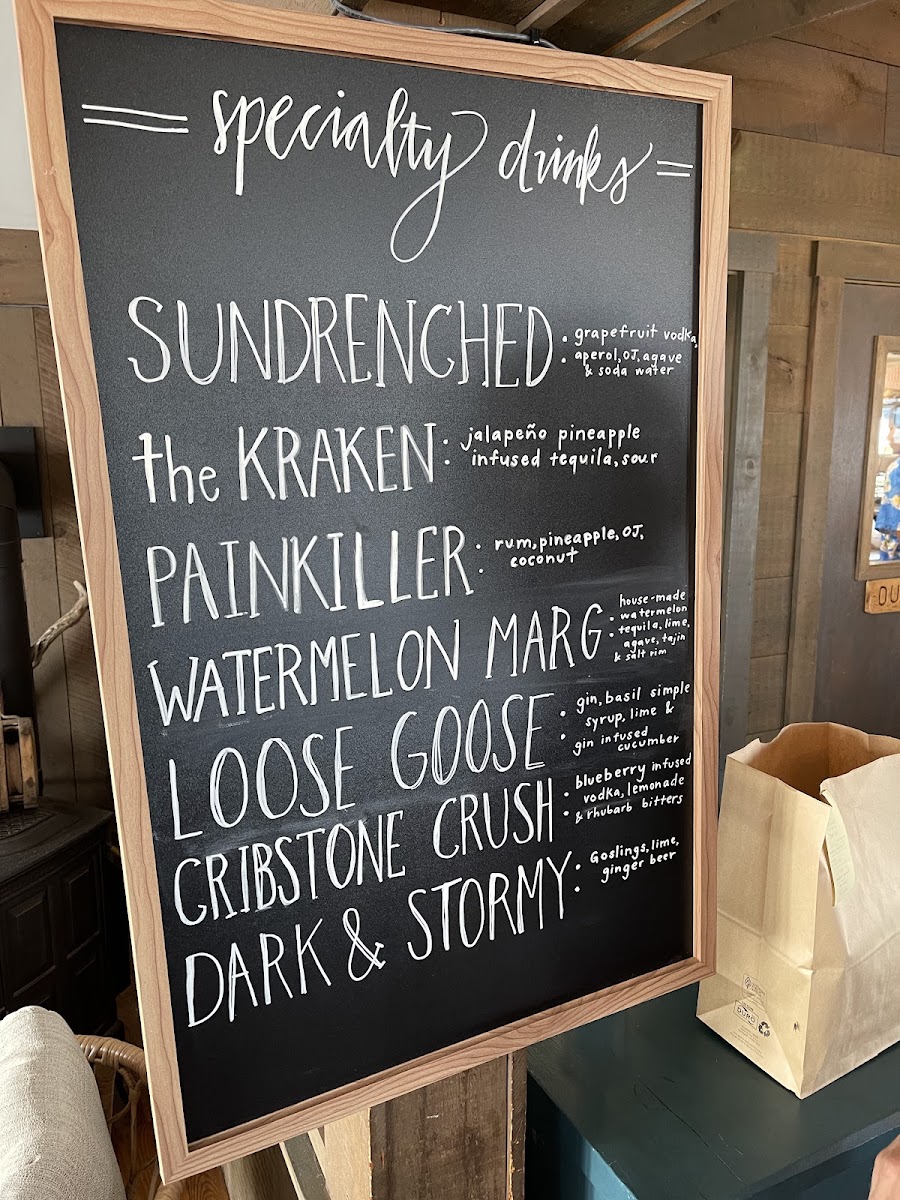 specialty drinks
SUNDRENCHED : grapefruit vodka,
aperol, OJ, agave
& soda water
the KRAKEN : jalapeño pineapple
infused tequila, sour
PAINKILLER : rum, pineapple, OJ,
coconut
WATERMELON MARG : house-made
watermelon
tequila, lime,
agave, tajin
& salt rim
LOOSE GOOSE : gin, basil simple
syrup, lime &
gin infused
cucumber
CRIBSTONE CRUSH : blueberry infused
vodka, lemonade
& rhubarb bitters
DARK & STORMY : Goslings, lime,
ginger beer
OU
DURO